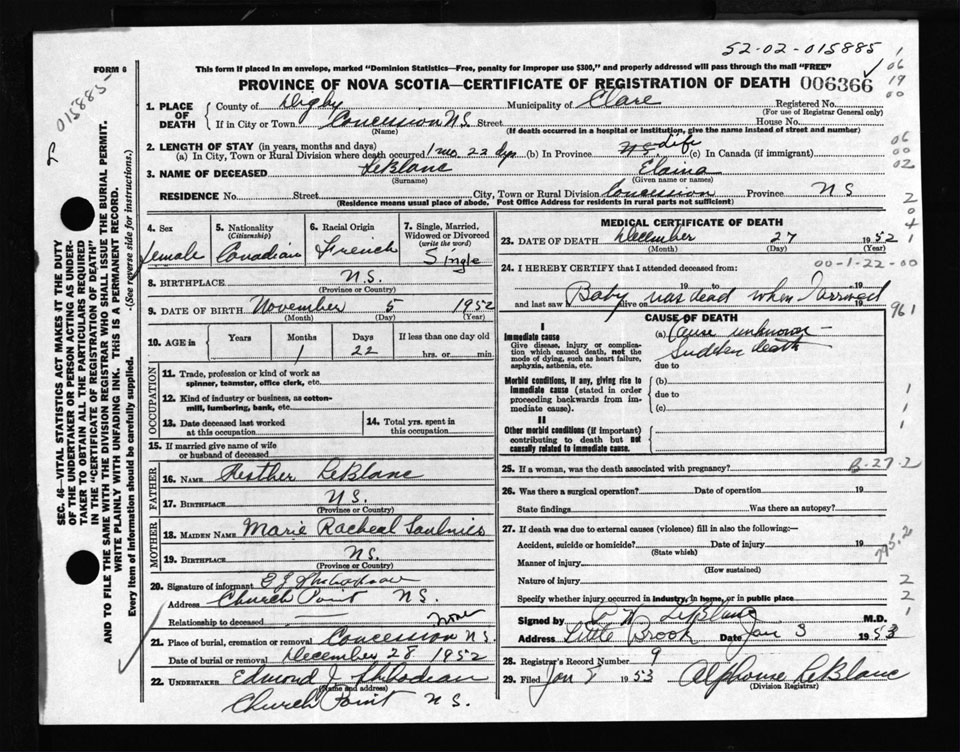 52-02-015885
FORM 6
This form if placed in an envelope, marked "Dominion Statistics—Free, penalty for improper use $300," and properly addressed will pass through the mail "FREE"
PROVINCE OF NOVA SCOTIA—CERTIFICATE OF REGISTRATION OF DEATH 006366
1. PLACE OF DEATH County of Digby Municipality of Clare Registered No.
(For use of Registrar General only)
If in City or Town Concession N.S. Street House No.
(Name) (If death occurred in a hospital or institution, give the name instead of street and number)
2. LENGTH OF STAY (in years, months and days)
(a) In City, Town or Rural Division where death occurred 1 mo. 22 dys (b) In Province life (c) In Canada (if immigrant)
3. NAME OF DECEASED LeBlanc Elaina
(Surname) (Given name or names)
RESIDENCE No. Street City, Town or Rural Division Concession Province N S
(Residence means usual place of abode. Post Office Address for residents in rural parts not sufficient)
4. Sex female
5. Nationality (Citizenship) Canadian
6. Racial Origin French
7. Single, Married, Widowed or Divorced (write the word) Single
8. BIRTHPLACE N.S.
(Province or Country)
9. DATE OF BIRTH November 5 1952
(Month) (Day) (Year)
10. AGE in Years Months Days If less than one day old
1 22 hrs. or min.
OCCUPATION
11. Trade, profession or kind of work as spinner, teamster, office clerk, etc.
12. Kind of industry or business, as cotton-mill, lumbering, bank, etc.
13. Date deceased last worked at this occupation
14. Total yrs. spent in this occupation
15. If married give name of wife or husband of deceased
FATHER
16. NAME LeBlanc
17. BIRTHPLACE N.S.
(Province or Country)
MOTHER
18. MAIDEN NAME Marie Racheal Saulnier
19. BIRTHPLACE N.S.
(Province or Country)
20. Signature of informant
Address Church Point N S.
Relationship to deceased none
21. Place of burial, cremation or removal Concession N.S.
Date of burial or removal December 28 1952
22. UNDERTAKER Edmond J. Thibodeau
(Name and address)
Church Point N S.
MEDICAL CERTIFICATE OF DEATH
23. DATE OF DEATH December 27 1952
(Month) (Day) (Year)
00-1-22-00
24. I HEREBY CERTIFY that I attended deceased from:
19 to 19
and last saw alive on 19
Baby was dead when I arrived
961
CAUSE OF DEATH
I
Immediate cause
Give disease, injury or complication which caused death, not the mode of dying, such as heart failure, asphyxia, asthenia, etc.
(a) Cause unknown —
Sudden death
due to
Morbid conditions, if any, giving rise to immediate cause (stated in order proceeding backwards from immediate cause).
(b)
due to
(c)
II
Other morbid conditions (if important) contributing to death but not causally related to immediate cause.
25. If a woman, was the death associated with pregnancy? B-27-2
26. Was there a surgical operation? Date of operation 19
State findings Was there an autopsy?
27. If death was due to external causes (violence) fill in also the following:—
Accident, suicide or homicide? Date of injury 19
(State which)
795.2
Manner of injury
(How sustained)
Nature of injury
Specify whether injury occurred in industry, in home, or in public place
Signed by LeBlanc M.D.
Address Little Brook Date Jan 3 1953
28. Registrar's Record Number 9
29. Filed Jan 1953 Alphonse LeBlanc
(Division Registrar)
015885
SEC. 46—VITAL STATISTICS ACT MAKES IT THE DUTY
OF THE UNDERTAKER OR PERSON ACTING AS UNDER-
TAKER TO OBTAIN ALL THE PARTICULARS REQUIRED
IN THE "CERTIFICATE OF REGISTRATION OF DEATH"
AND TO FILE THE SAME WITH THE DIVISION REGISTRAR WHO SHALL ISSUE THE BURIAL PERMIT.
WRITE PLAINLY WITH UNFADING INK. THIS IS A PERMANENT RECORD.
Every item of information should be carefully supplied. (See reverse side for instructions.)